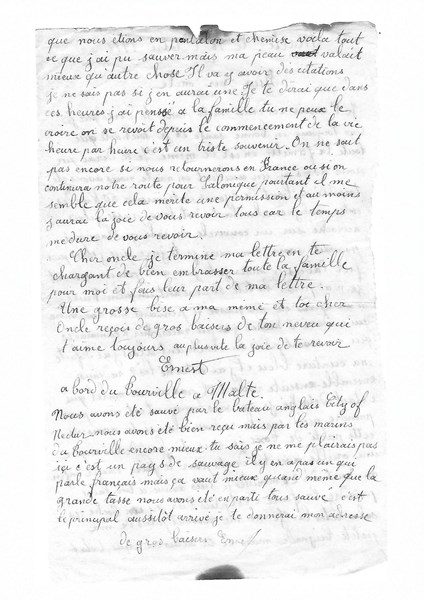 que nous étions en pantalon et chemise voila tout
ce que j'ai pu sauver mais ma peau valait
mieux qu'autre chose Il va y avoir des citations
je ne sais pas si j'en aurai une Je te dirai que dans
ces heures j'ai pensé a la famille tu ne peux le
croire on se revoit depuis le commencement de la vie
heure par heure c'est un triste souvenir. On ne sait
pas encore si nous retournerons en France ou si on
continura notre route pour Salonique pourtant il me
semble que cela mérite une permission et au moins
j'aurai la joie de vous revoir tous car le temps
me dure de vous revoir.
Cher oncle je termine ma lettre en te
chargant de bien embrasser toute la famille
pour moi et fais leur part de ma lettre.
Une grosse bise a ma mémé et toi cher
Oncle reçois de gros baisers de ton neveu qui
t'aime toujours au plus vite la joie de te revoir
Ernest
a bord du Bourville a Malte.
Nous avons été sauvé par le bateau anglais City of
nous avons été bien reçu mais par les marins
du Bourville encore mieux. tu sais je ne me plairais pas
ici c'est un pays de sauvage il y en a pas un qui
parle français mais ça vaut mieux quand même que la
grande tasse nous avons été en parti tous sauvé c'est
le principal aussitôt arrivé je te donnerai mon adresse
de gros baisers Ernest